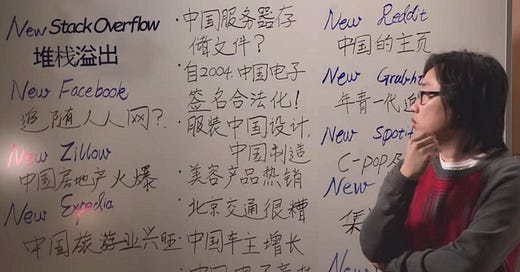 New Stack Overflow
堆栈溢出
New Facebook
追随人人网?
New Zillow
中国房地产火爆
New Expedia
中国旅游业兴旺
·中国服务器存
储文件?
·自2004,中国电子
签名合法化!
·服装中国设计,
中国制造
·美容产品热销
·北京交通很糟
·中国车主增长
New Reddit
中国的主页
New
年青一代
New
C-pop
New
集